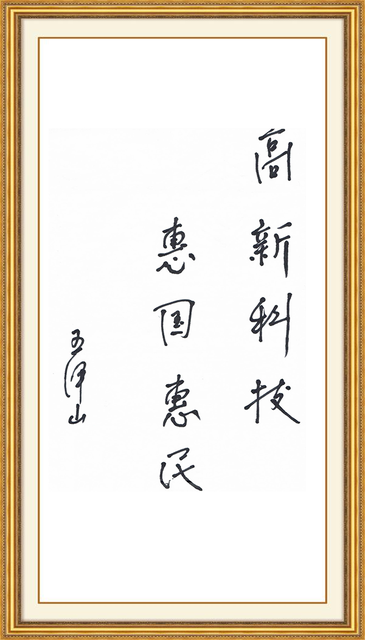 高新科技
惠国惠民
王泽山